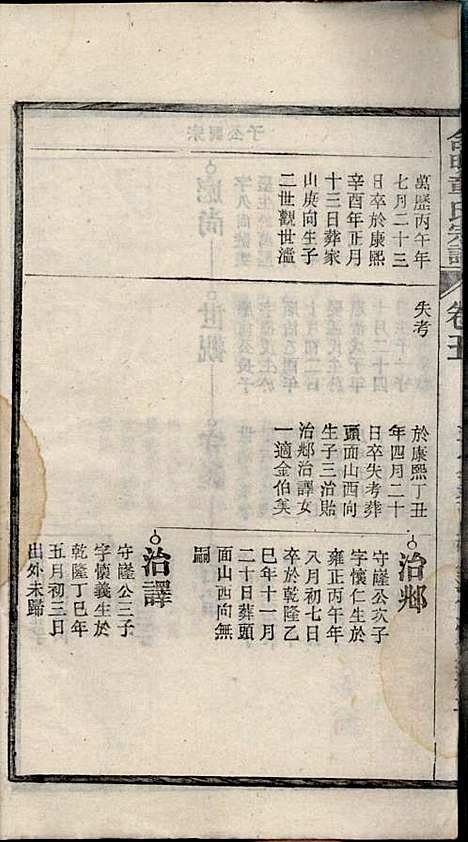 萬歷丙午年
七月二十三
日卒於康熙
辛酉年正月
十三日葬家
山庚向生子
二世觀世濫
失考
於康熙丁丑
年四月二十
日卒失考葬
頭面山西向
生子三治貽
治鄰治譯女
一適金伯奐
治鄰
守謹公次子
字懷仁生於
雍正丙午年
八月初七日
卒於乾隆乙
巳年十一月
二十日葬頭
面山西向無
嗣
治譯
守謹公三子
字懷義生於
乾隆丁巳年
五月初三日
出外未歸
章氏宗譜
卷五